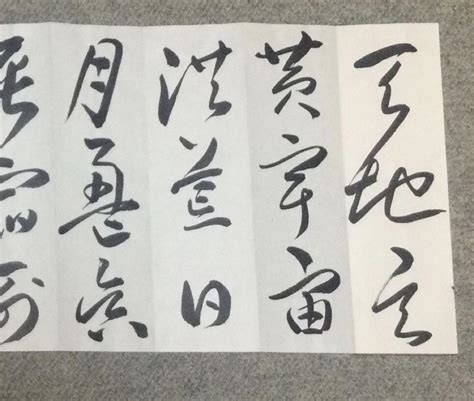 天地玄
黄宇宙
洪荒日
月盈昃
辰宿列